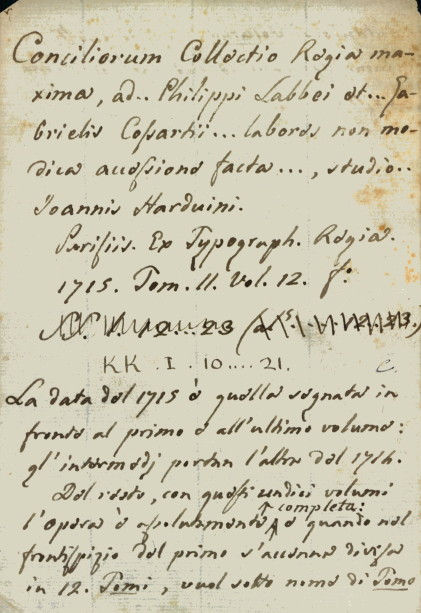 Conciliorum Collectio Regia ma-
xima, ad.. Philippi Labbei et... Ga-
brielis Cossartii... labores non mo-
dica accessione facta..., studio..
Ioannis Harduini.
Parisiis. Ex Typograph. Regia.
1715. Tom. II. Vol. 12. f.
12...23
KK. I. 10.... 21.
La data del 1715 è quella segnata in
fronte al primo e all'ultimo volume:
gl'intermedj portan l'altra del 1714.
Del resto, con questi undici volumi
completa:
l'Opera è assolutamente e quando nel
frontispizio del primo s'accenna divisa
in 12. Tomi, vuol sotto nome di Tomo